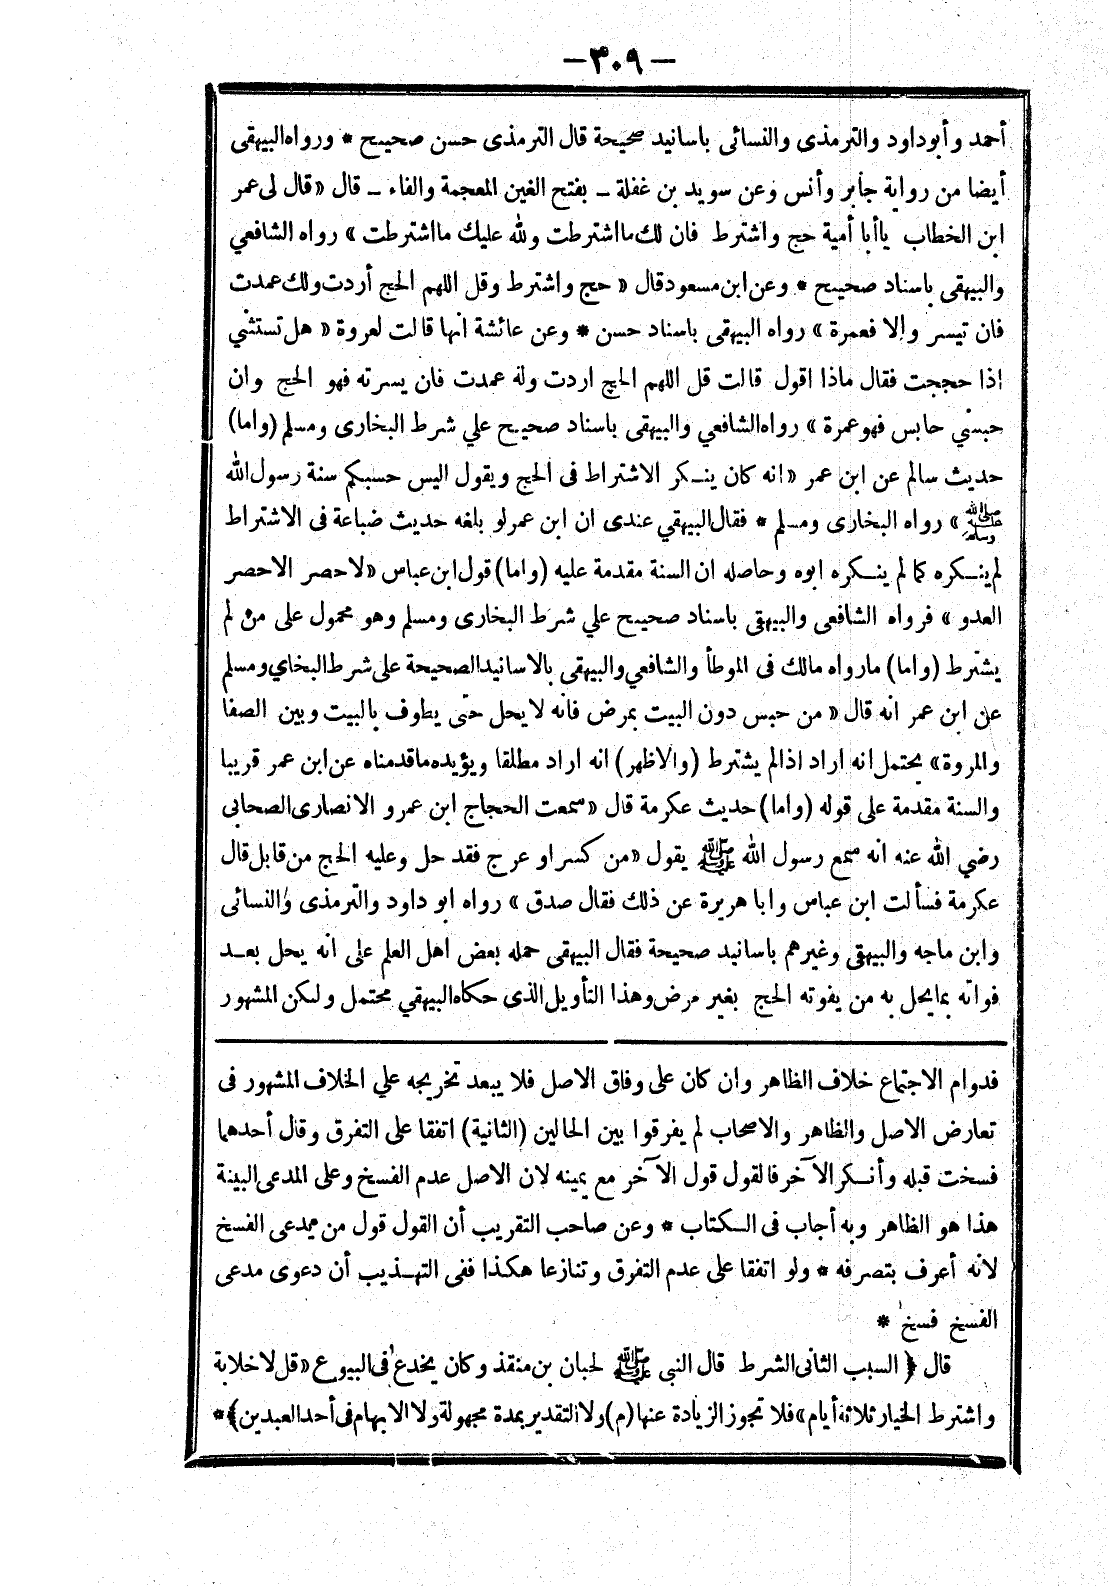 -٣٠٩-
أحمد وأبوداود والترمذى والنسائى باسانيد صحيحة قال الترمذى حسن صحيح * ورواه البيهقى
أيضا من رواية جابر وأنس وعن سويد بن غفلة - بفتح الغين المعجمة والفاء - قال «قال لى عمر
ابن الخطاب ياأبا أمية حج واشترط فان لك مااشترطت ولله عليك مااشترطت » رواه الشافعي
والبيهقى باسناد صحيح * وعن ابن مسعود قال « حج واشترط وقل اللهم الحج أردت ولك عمدت
فان تيسر وإلا فعمرة » رواه البيهقى باسناد حسن * وعن عائشة انها قالت لعروة « هل تستثني
اذا حججت فقال ماذا اقول قالت قل اللهم الحج اردت وله عمدت فان يسرته فهو الحج وان
حبسني حابس فهو عمرة » رواه الشافعي والبيهقى باسناد صحيح علي شرط البخارى ومسلم (واما)
حديث سالم عن ابن عمر «انه كان ينكر الاشتراط فى الحج ويقول اليس حسبكم سنة رسول الله
ﷺ » رواه البخارى ومسلم * فقال البيهقي عندى ان ابن عمر لو بلغه حديث ضباعة فى الاشتراط
لم ينكره كما لم ينكره ابوه وحاصله ان السنة مقدمة عليه (واما) قول ابن عباس «لاحصر الا حصر
العدو » فرواه الشافعى والبيهقى باسناد صحيح علي شرط البخارى ومسلم وهو محمول على من لم
يشترط (واما) مارواه مالك فى الموطأ والشافعي والبيهقى بالاسانيد الصحيحة على شرط البخاي ومسلم
عن ابن عمر انه قال « من حبس دون البيت بمرض فانه لا يحل حتى يطوف بالبيت وبين الصفا
والمروة» يحتمل انه اراد اذالم يشترط (والاظهر) انه اراد مطلقا ويؤيده ماقدمناه عن ابن عمر قريبا
والسنة مقدمة على قوله (واما) حديث عكرمة قال «سمعت الحجاج ابن عمرو الانصارى الصحابى
رضي الله عنه انه سمع رسول الله ﷺ يقول «من كسر او عرج فقد حل وعليه الحج من قابل قال
عكرمة فسألت ابن عباس وابا هريرة عن ذلك فقال صدق » رواه ابو داود والترمذى والنسائى
وابن ماجه والبيهقى وغيرهم باسانيد صحيحة فقال البيهقى حمله بعض اهل العلم على انه يحل بعد
فواته بما يحل به من يفوته الحج بغير مرض وهذا التأويل الذى حكاه البيهقي محتمل ولكن المشهور
فدوام الاجتماع خلاف الظاهر وان كان على وفاق الاصل فلا يبعد تخريجه علي الخلاف المشهور فى
تعارض الاصل والظاهر والاصحاب لم يفرقوا بين الحالين (الثانية) اتفقا على التفرق وقال أحدهما
فسخت قبله وأنكر الآخر فالقول قول الآخر مع يمينه لان الاصل عدم الفسخ وعلى المدعى البينة
هذا هو الظاهر وبه أجاب فى الكتاب * وعن صاحب التقريب أن القول قول من يدعى الفسخ
لانه أعرف بتصرفه * ولو اتفقا على عدم التفرق وتنازعا هكذا ففى التهذيب أن دعوى مدعى
الفسخ فسخ *
قال ﴿ السبب الثانى الشرط قال النبى ﷺ لحبان بن منقذ وكان يخدع فى البيوع «قل لاخلابة
واشترط الخيار ثلاثة أيام» فلا تجوز الزيادة عنها (م) ولا التقدير بمدة مجهولة ولا الابهام فى أحد العبدين﴾*